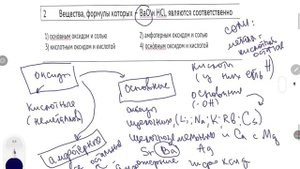 2 Вещества, формулы которых – BaO и HCl, являются соответственно
1) основным оксидом и солью
2) амфотерным оксидом и солью
3) кислотным оксидом и кислотой
4) основным оксидом и кислотой
соли:
металл+
кислотный
оксиды
кислотные
(неметаллов)
амфотерные
основные
оксиды
щелочных (Li; Na; K; Rb; Cs)
щелочноземельных и Ca с Mg
Sr Ba
кислоты
(у них есть H)
основания
(-OH)